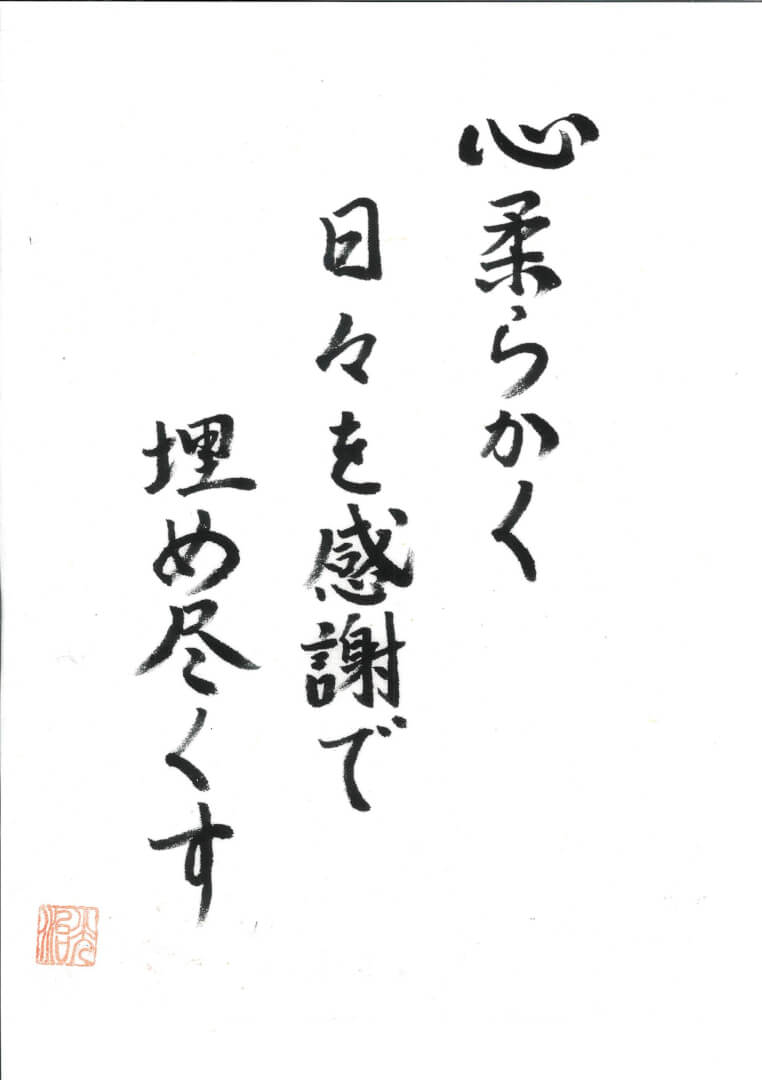 心柔らかく
日々を感謝で
埋め尽くす